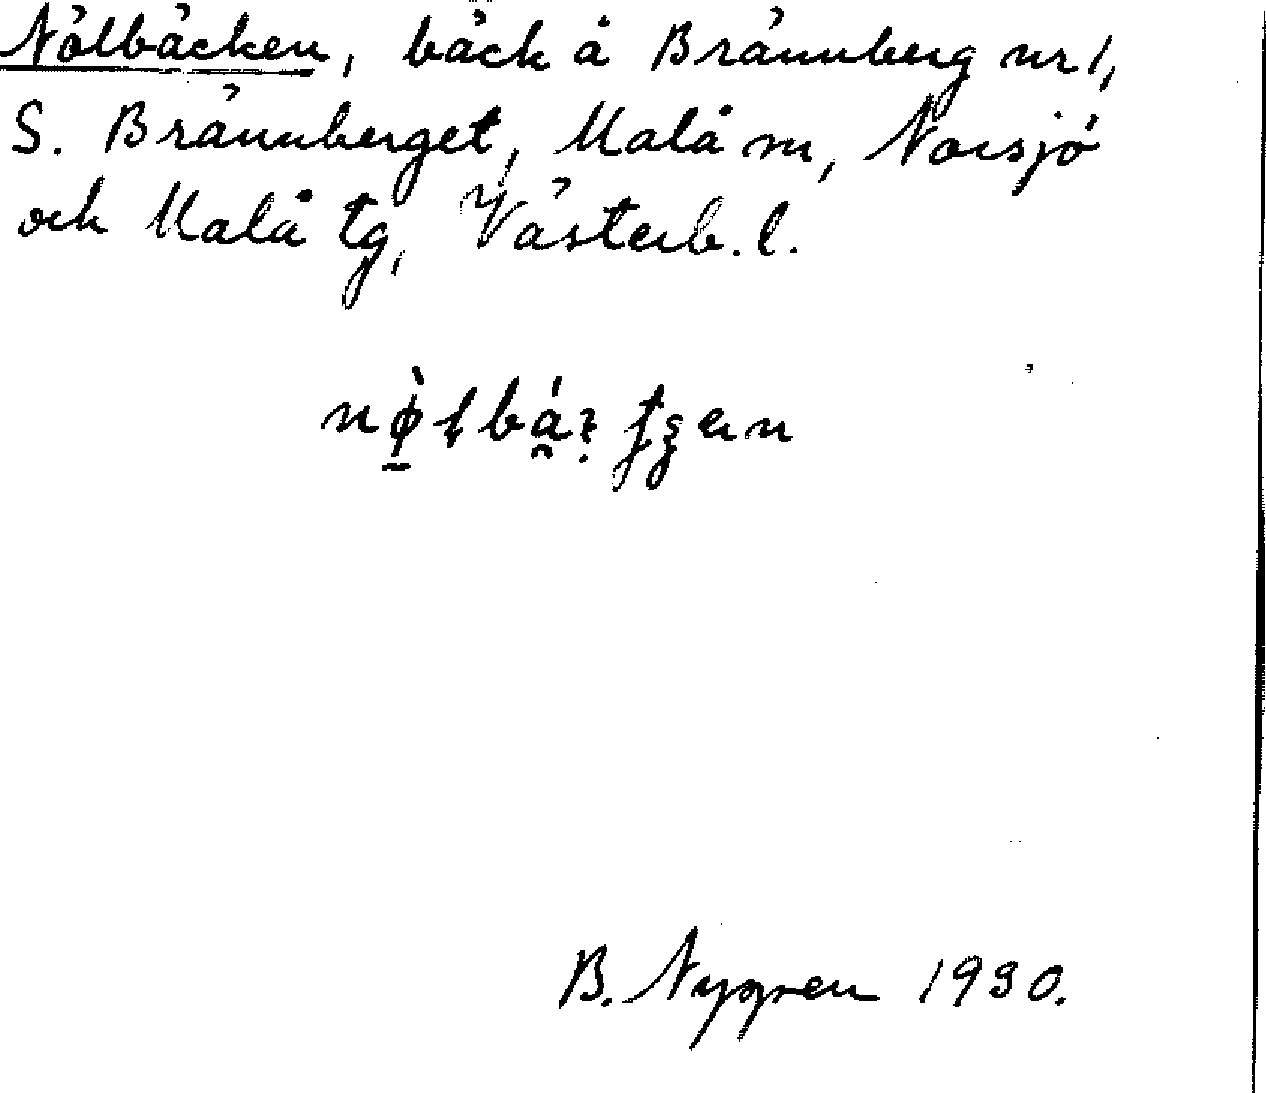 Nölbäcken, bäck å Brännberg nr 1,
S. Brännberget, Malå sn, Norsjö
och Malå tg, Västerb. l.
B. Nygren 1930.